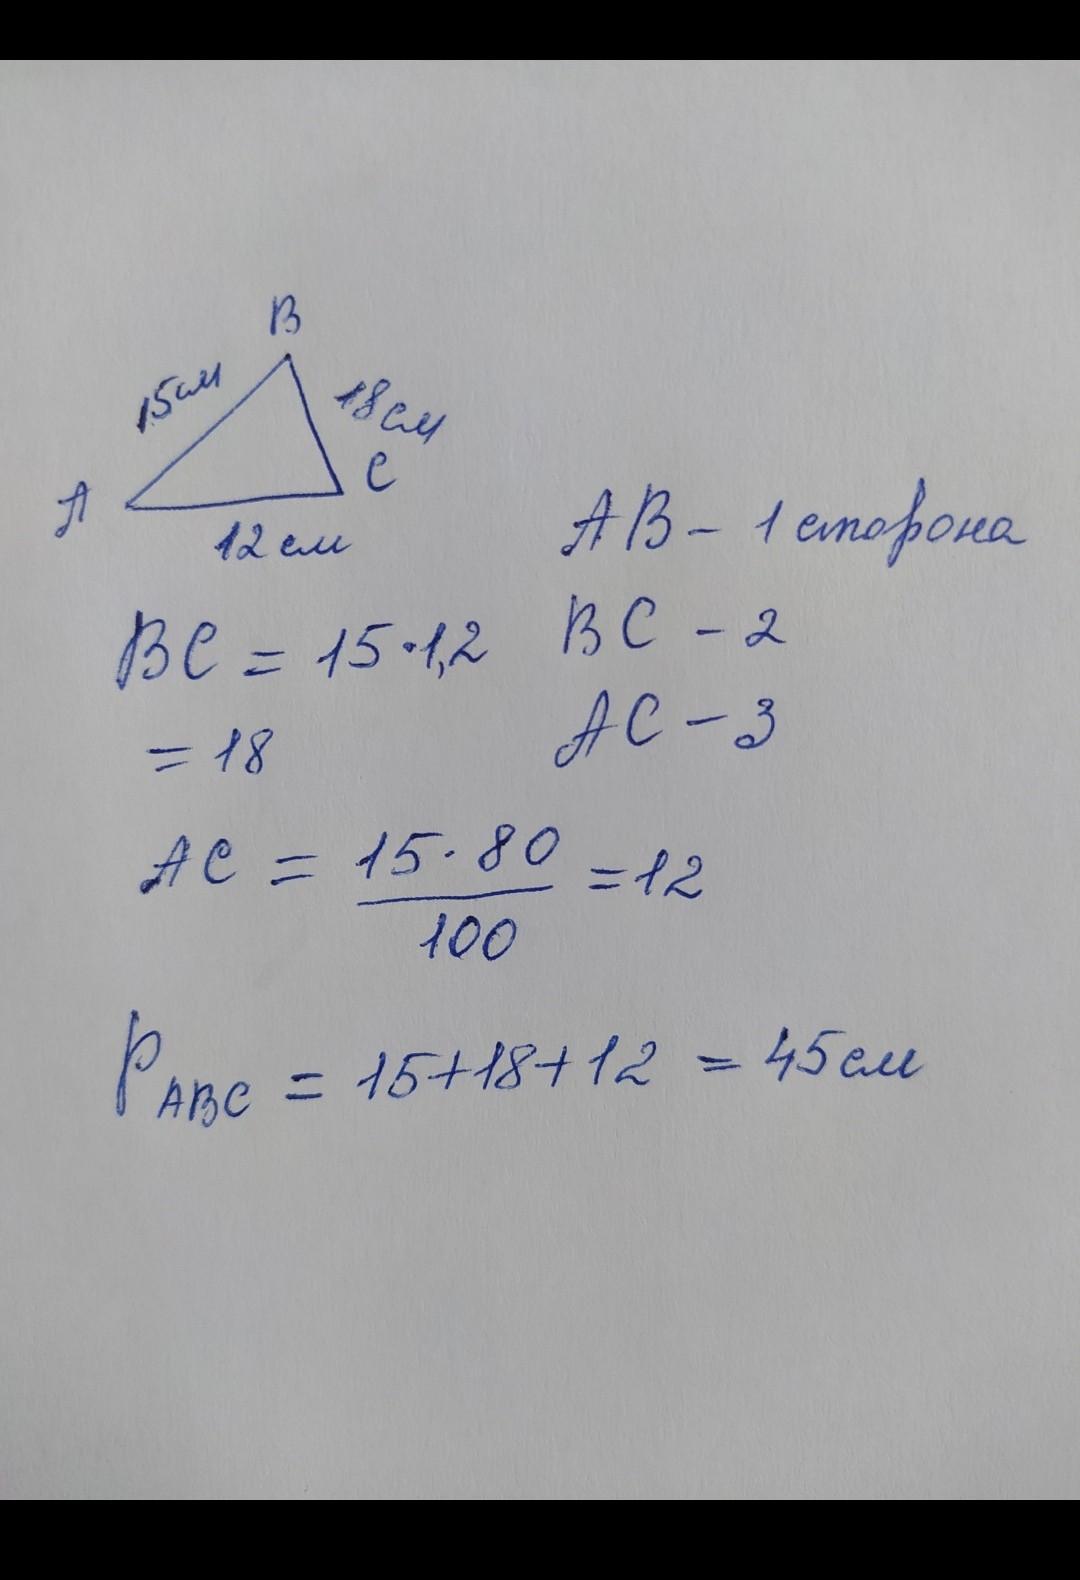 B
15см
18см
A
C
12 см
AB - 1 сторона
BC = 15·1,2
BC - 2
= 18
AC - 3
AC = 15·80/100 = 12
P ABC = 15+18+12 = 45 см